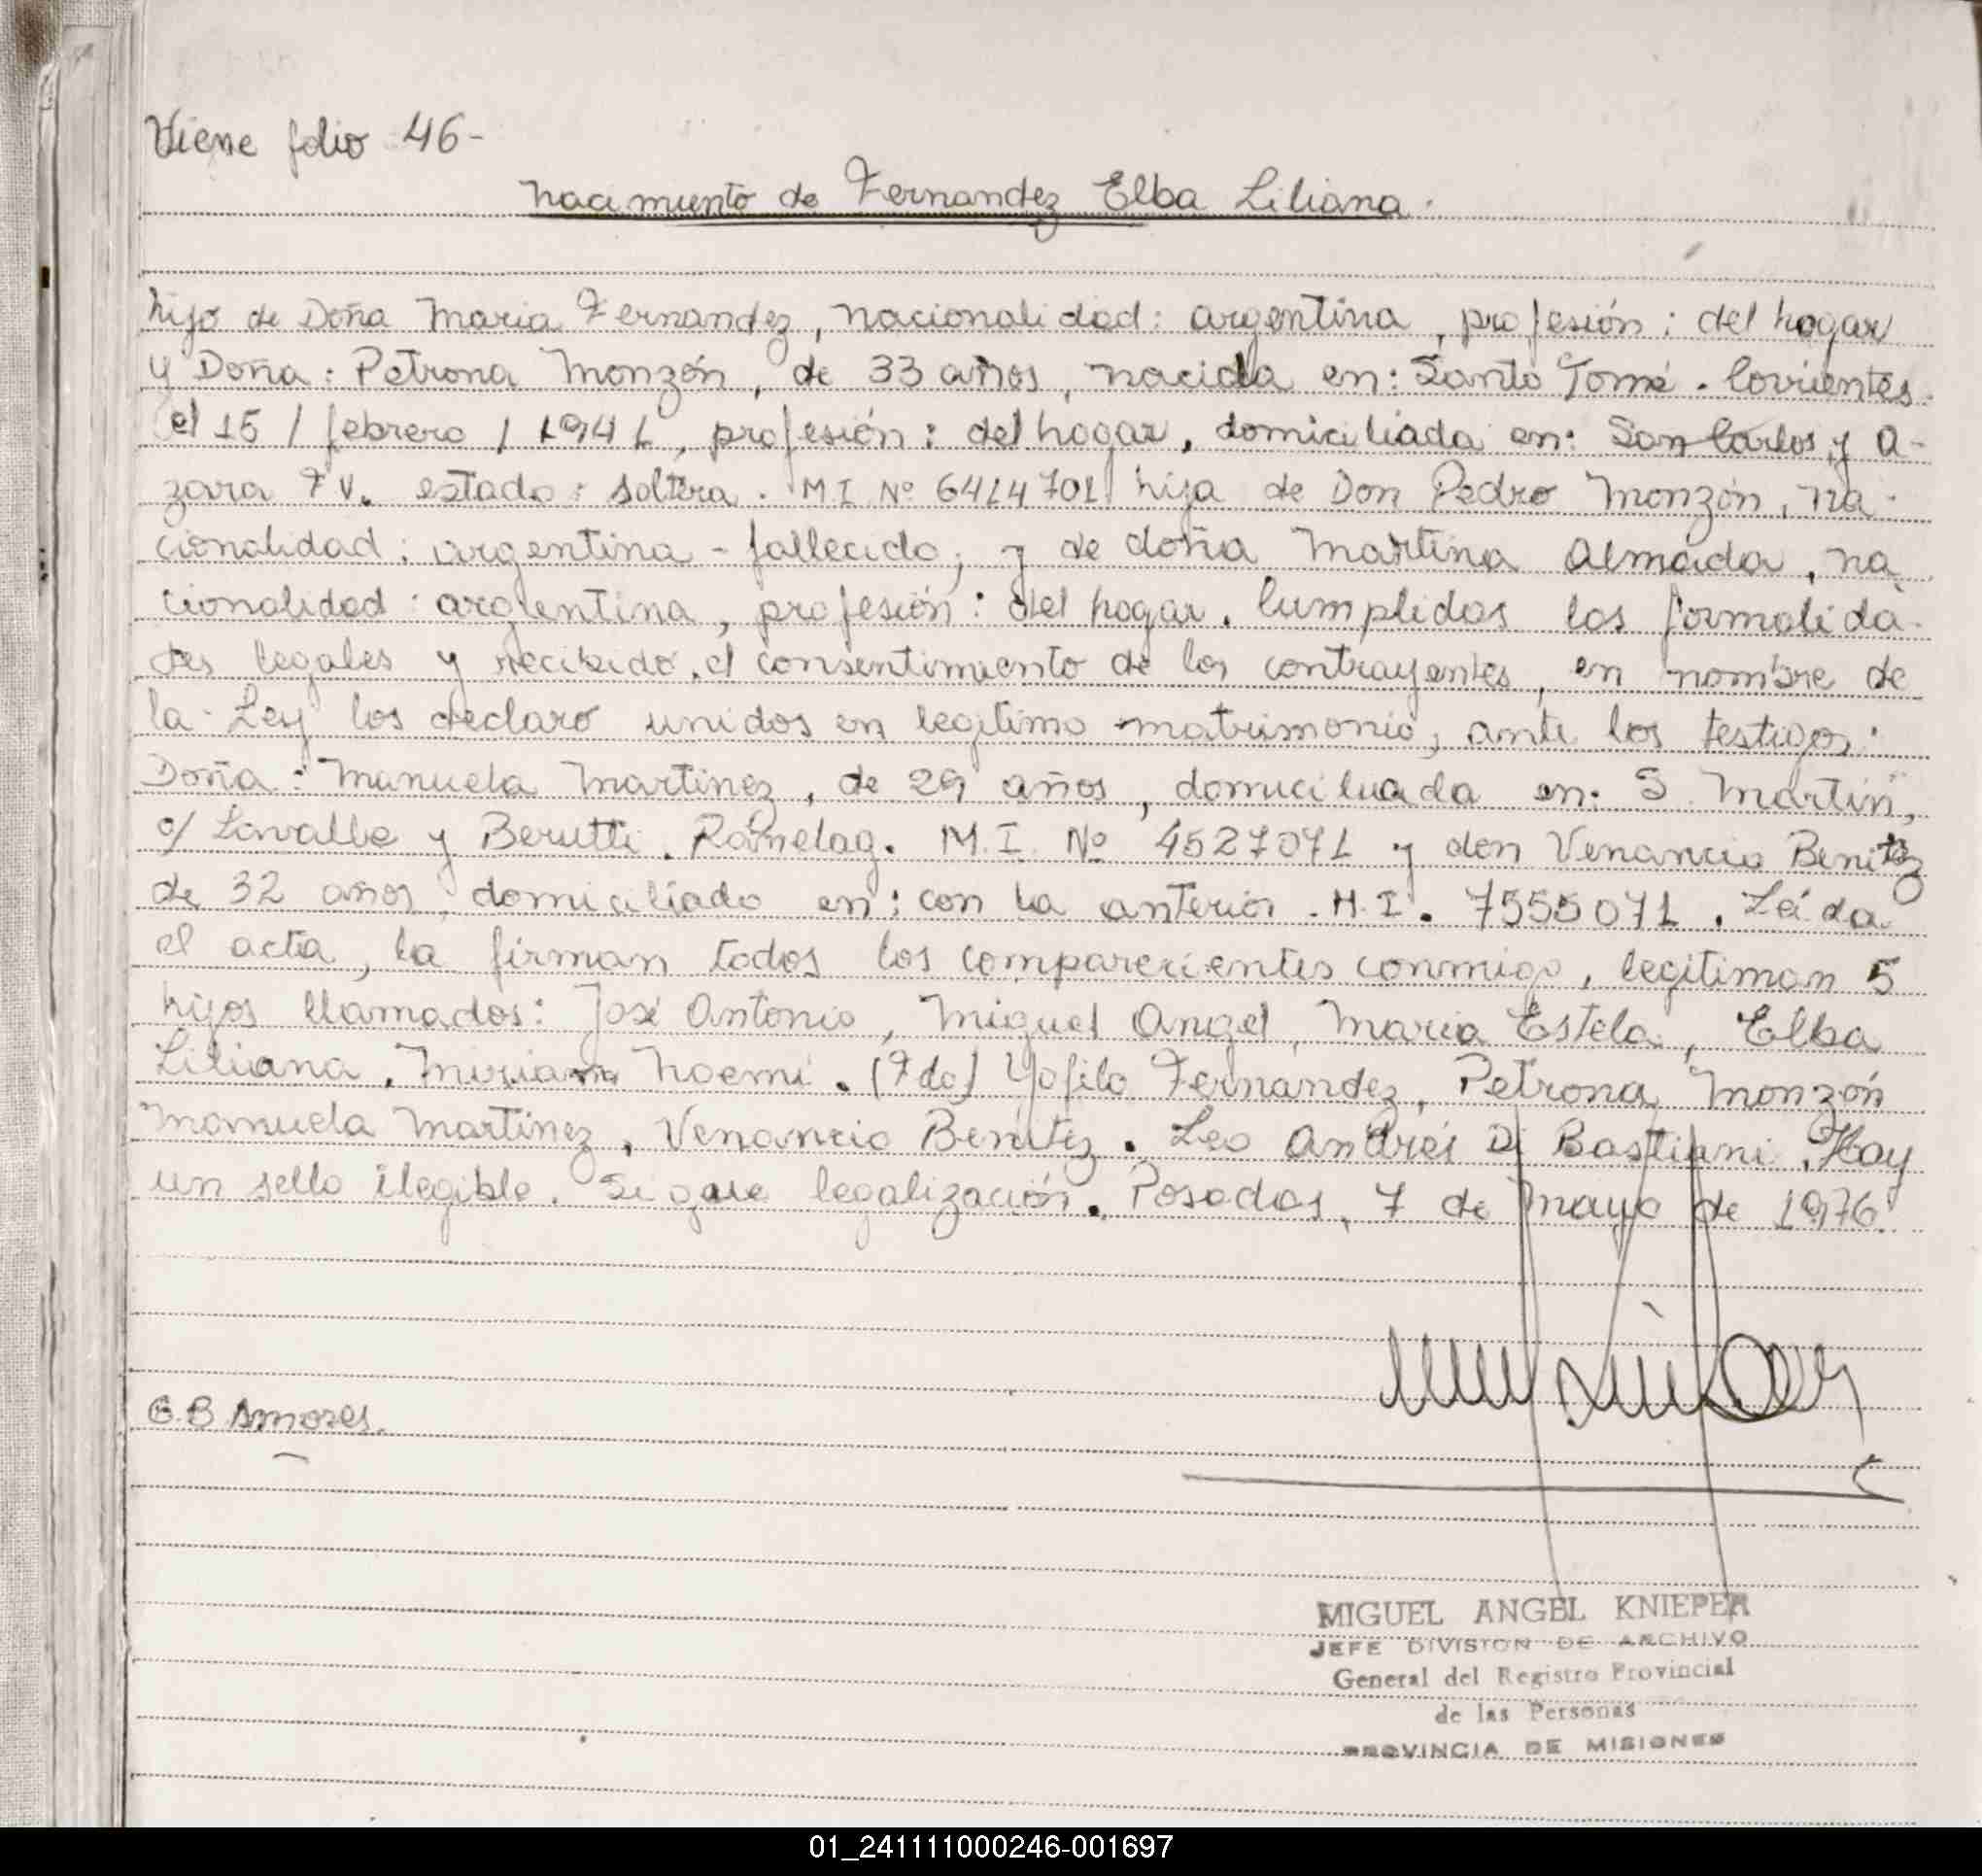 Viene folio 46-
nacimiento de Fernandez Elba Liliana.
hijo de Doña Maria Fernandez, nacionalidad: argentina, profesión: del hogar
y Doña: Petrona Monzón, de 33 años, nacida en: Santo Tomé. Corrientes.
el 15 / febrero / 1941, profesión: del hogar, domiciliada en: San Carlos y A-
zara F V. estado: soltera. M I Nº 6414701 hija de Don Pedro Monzón, na-
cionalidad: argentina - fallecido; y de doña Martina Almada, na
cionalidad: argentina, profesión: del hogar. Cumplidas las formalida-
des legales y recibido el consentimiento de los contrayentes, en nombre de
la Ley los declaro unidos en legitimo matrimonio, ante los testigos:
Doña: Manuela Martinez, de 29 años, domiciliada en: S. Martin,
c/ Lavalle y Berutti. Ranelag. M.I. Nº 4527071 y don Venancio Benitez
de 32 años, domiciliado en: con la anterior. M.I. 7555071. Leida
el acta, la firman todos los comparecientes conmigo, legitiman 5
hijos llamados: José Antonio, Miguel Angel, Maria Estela, Elba
Liliana, Miriam Noemi. (Fdo) Yofilo Fernandez, Petrona Monzón
Manuela Martinez, Venancio Benitez. Leo Andrés Di Bastiani. Hay
un sello ilegible. Sigue legalización. Posadas, 7 de mayo de 1976.
G.B Amores.
MIGUEL ANGEL KNIEPER
JEFE DIVISION DE ARCHIVO
General del Registro Provincial
de las Personas
PROVINCIA DE MISIONES
01_241111000246-001697